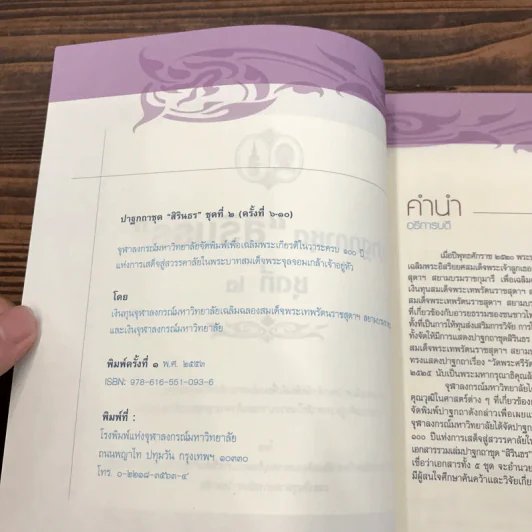 ปาฐกถาชุด "สิรินธร" ชุดที่ ๒ (ครั้งที่ ๖-๑๐)
จุฬาลงกรณ์มหาวิทยาลัยจัดพิมพ์เพื่อเฉลิมพระเกียรติในวาระครบ ๑๐๐ ปี
แห่งการเสด็จสู่สวรรคาลัยในพระบาทสมเด็จพระจุลจอมเกล้าเจ้าอยู่หัว
โดย
เงินทุนจุฬาลงกรณ์มหาวิทยาลัยเฉลิมฉลองสมเด็จพระเทพรัตนราชสุดาฯ สยามบรมราช
และเงินจุฬาลงกรณ์มหาวิทยาลัย
พิมพ์ครั้งที่ ๑ พ.ศ. ๒๕๕๓
ISBN: 978-616-551-093-6
พิมพ์ที่ :
โรงพิมพ์แห่งจุฬาลงกรณ์มหาวิทยาลัย
ถนนพญาไท ปทุมวัน กรุงเทพฯ ๑๐๓๓๐
โทร. ๐-๒๒๑๘-๓๕๖๓-๔
คำนำ
อธิการบดี
เมื่อปีพุทธศักราช ๒๕๒๐ พระ
เฉลิมพระอิสริยยศสมเด็จพระเจ้าลูกเธอ
สุดาฯ สยามบรมราชกุมารี เพื่อเฉลิม
เงินทุนสมเด็จพระเทพรัตนราชสุดาฯ
สมเด็จพระเทพรัตนราชสุดาฯ สยาม
ที่เกี่ยวข้องกับอารยธรรมของชนชาวไท
ทั้งที่เป็นการให้ทุนส่งเสริมการวิจัย การ
ทั้งจัดให้มีการแสดงปาฐกถาชุดสิรินธร
สมเด็จพระเทพรัตนราชสุดาฯ สยามบร
ทรงแสดงปาฐกถาเรื่อง "วัดพระศรีรั
๒๕๒๕ นับเป็นพระมหากรุณาธิคุณล้
จุฬาลงกรณ์มหาวิทยาลัยไ
คุณวุฒิในศาสตร์ต่าง ๆ ที่เกี่ยวข้อง
จัดพิมพ์ปาฐกถาดังกล่าวเพื่อเผยแ
จุฬาลงกรณ์มหาวิทยาลัยได้จัดปาฐ
๑๐๐ ปีแห่งการเสด็จสู่สวรรคาลัยข
เอกสารรวมเล่มปาฐกถาชุดสิรินธร
เชื่อว่าเอกสารทั้ง ๕ ชุด จะอำนวย
มีผู้สนใจศึกษาค้นคว้าและวิจัยเกี่ย